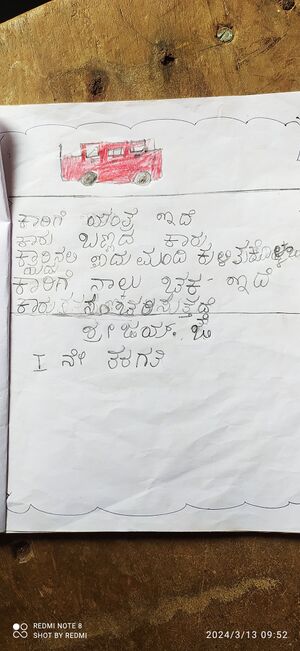 ಕಾರಿಗೆ ಯಂತ್ರ ಇದೆ
ಕಾರು ಬಣ್ಣದ ಕಾರು
ಕಾರಿನಲಿ ಐದು ಮಂದಿ ಕುಳಿತುಕೊಳ್ಳಬ
ಹುದು
ಕಾರಿಗೆ ನಾಲ್ಕು ಚಕ್ರ ಇದೆ
ಕಾರು ಸಂಚರಿಸುತ್ತದೆ
ಶ್ರೀಜಯ್. ಬಿ
I ನೇ ತರಗತಿ
REDMI NOTE 8
SHOT BY REDMI
2024/3/13 09:52